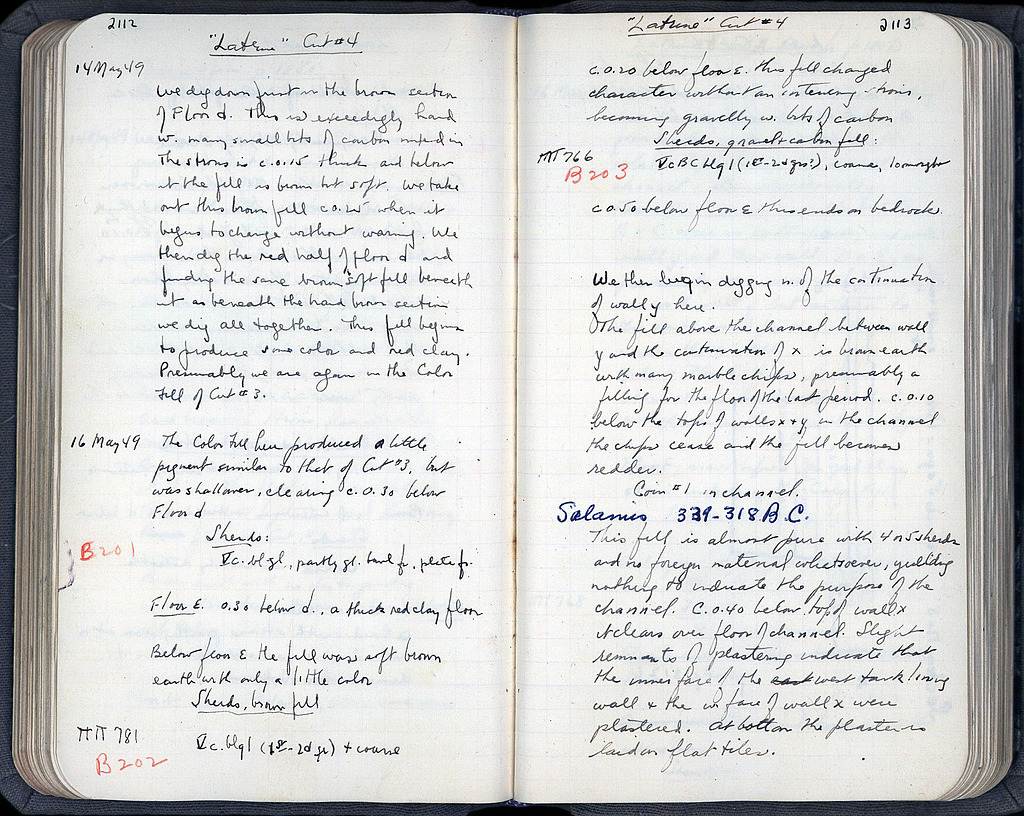 2112
"Latrine" Cut #4
14 May 49
We dig down first in the brown section
of Floor d. This is exceedingly hard
w. many small bits of carbon mixed in
The stratum is c. 0.15 thick and below
it the fill is brown but soft. We take
out this brown fill c 0.25 when it
begins to change without warning. We
then dig the red half of floor d and
finding the same brown soft fill beneath
it as beneath the hard brown section
we dig all together. This fill begins
to produce some color and red clay.
Presumably we are again in the Color
Fill of Cut #3.
16 May 49
The Color Fill here produced a little
pigment similar to that of Cut #3, but
was shallower, clearing c. 0.30 below
Floor d
Sherds:
B201
V c. bl gl., partly gl. bowl fr., plate fr.
Floor E. 0.30 below d., a thick red clay floor
Below floor E the fill was soft brown
earth with only a little color
Sherds, brown fill
ΠΠ 781
B202
V c. blgl (1st-2d qr) + coarse
2113
"Latrine" Cut #4
c. 0.20 below floor E. this fill changed
character without an intervening
becoming gravelly w. bits of carbon
Sherds, gravel + carbon fill:
ΠΠ 766
B203
V c BC blgl (1st-2d qrs?), coarse, 1 loomweight
c 0.50 below floor E this ends on bedrock.
We then begin digging n. of the continuation
of wall y here.
The fill above the channel between wall
y and the continuation of x is brown earth
with many marble chips, presumably a
filling for the floor of the last period. c. 0.10
below the tops of walls x + y, in the channel
the chips cease and the fill becomes
redder.
Coin #1 in channel.
Salamis 339-318 B.C.
This fill is almost pure with 4 or 5 sherds
and no foreign material whatsoever, yielding
nothing to indicate the purpose of the
channel. C. 0.40 below top of wall x
it clears over floor of channel. Slight
remnants of plastering indicate that
the inner face of the east west tank lining
wall + the face of wall x were
plastered. At bottom the plaster is
laid on flat tiles.